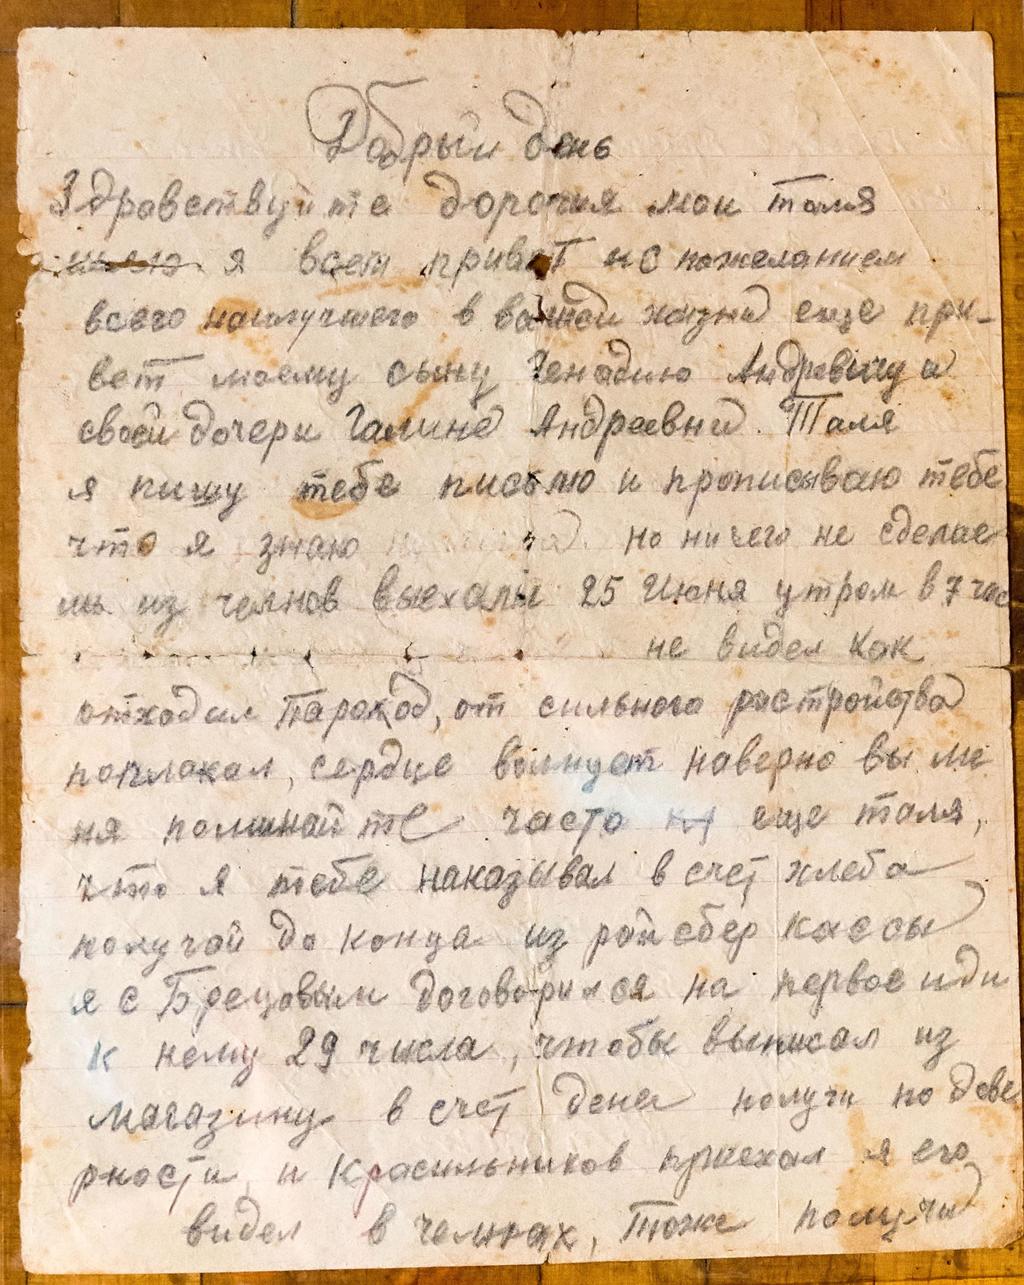 Добрый день
Здравствуйте дорогия мои таля
я всем привет и с пожеланием
всего наилучшего в вашей жизни еще при-
вет моему сыну Генадию Андревичу и
своей дочери Галине Андреевны. Таля
я пишу тебе письмо и прописываю тебе
что я знаю но ничего не сделае
шь из челнов выехали 25 Июня утром в 7 час
не видел как
отходил Пароход, от сильного растройства
поплакал, сердце волнует наверно вы ме
ня поминайте часто еще таля,
что я тебе наказывал в счет хлеба
получай до конца из рай сбер кассы
я с Брецовым договорился на первое иди
к нему 29 числа, чтобы выписал из
магазину в счет денег получи по дове
рности, и Красильников приехал я его
видел в челнах, Тоже получи